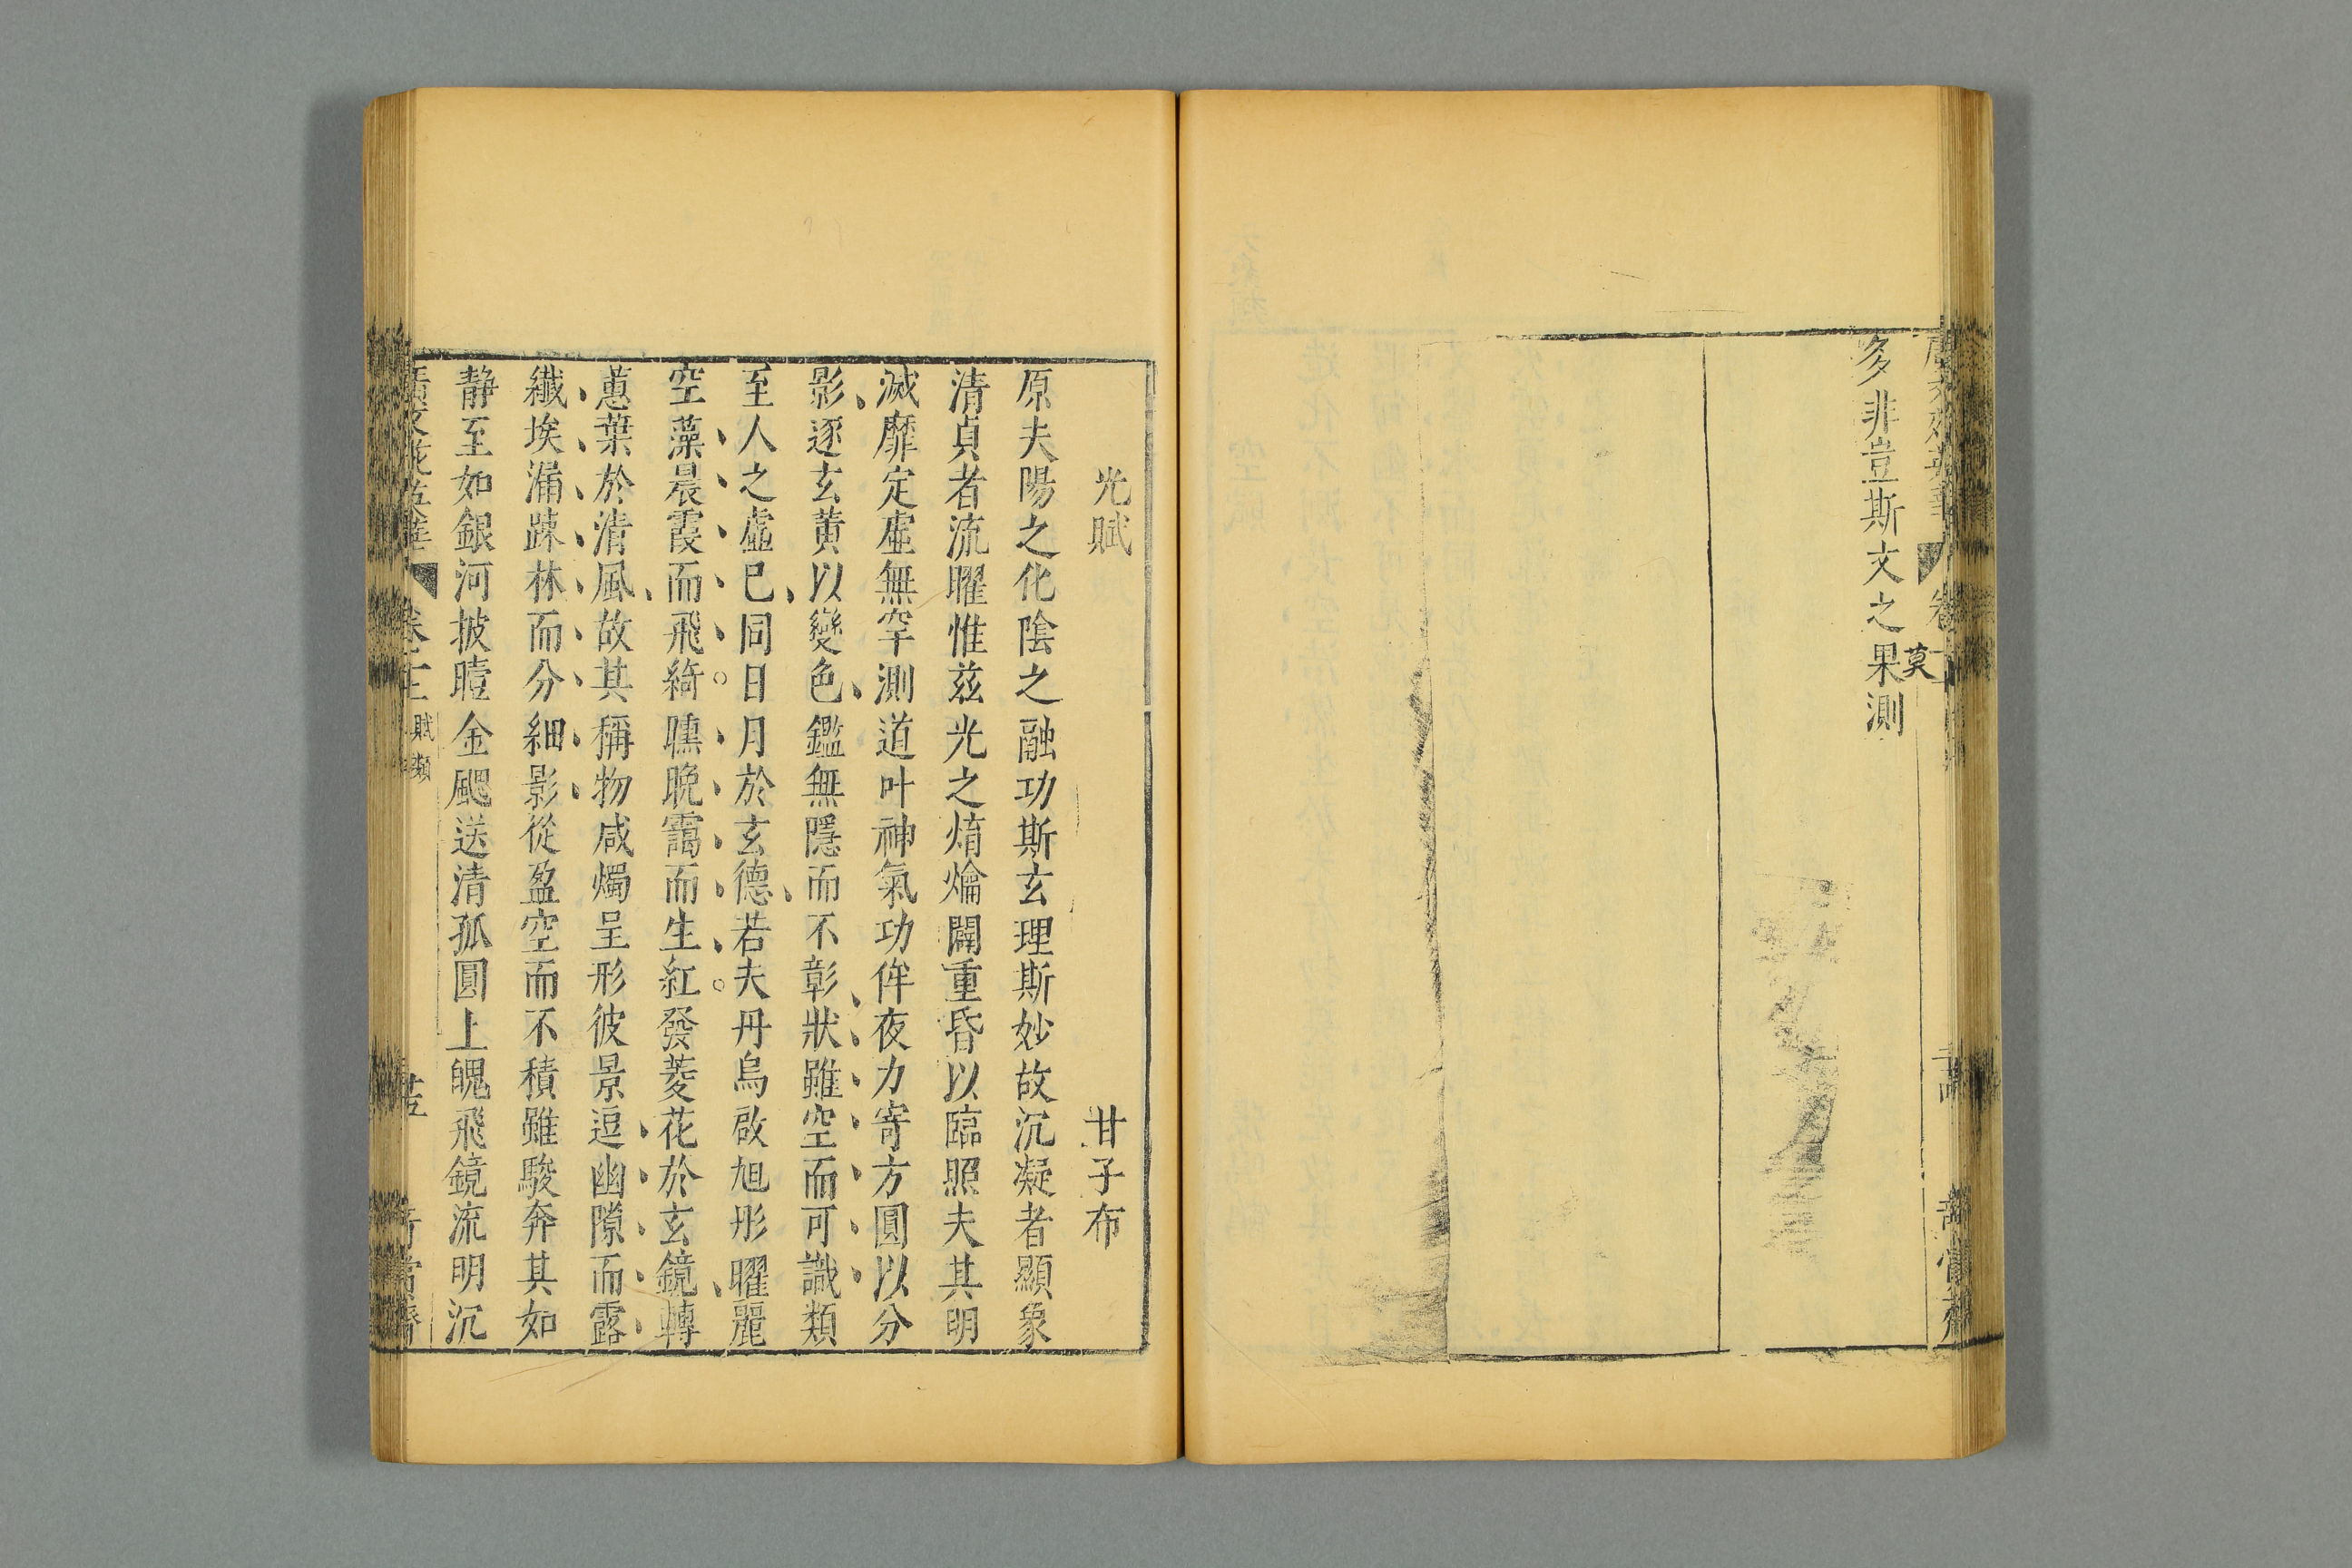 多非豈斯文之果測
莫
光賦 甘子布
原夫陽之化陰之融功斯玄理斯妙故沉凝者顯象
清貞者流曜惟茲光之焴爚闢重昏以臨照夫其明
滅靡定虛無罕測道叶神氣功侔夜力寄方圓以分
影逐玄黄以變色鑑無隱而不彰狀雖空而可識類
至人之虛已同日月於玄德若夫丹烏啟旭彤曜麗
空藻晨霞而飛綺曛晚靄而生紅發菱花於玄鏡轉
蕙葉於清風故其稱物咸燭呈形彼景逗幽隙而露
纖埃漏踈林而分細影從盈空而不積雖駿奔其如
静至如銀河披曀金颸送清孤圓上魄飛鏡流明沉
廣文苑英華 卷十二 賦類